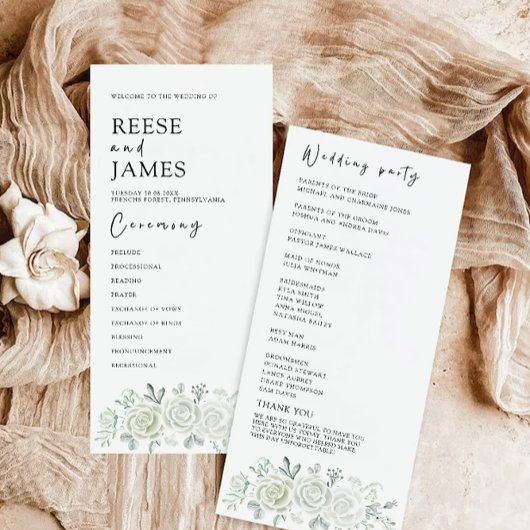 WELCOME TO THE WEDDING OF
REESE
and
JAMES
TUESDAY 20.08.20XX
FRENCHS FOREST, PENNSYLVANIA
Ceremony
PRELUDE
PROCESSIONAL
READING
PRAYER
EXCHANGE OF VOWS
EXCHANGE OF RINGS
BLESSING
PRONOUNCEMENT
RECESSIONAL
Wedding party
PARENTS OF THE BRIDE
MICHAEL AND CHARMAINE JONES
PARENTS OF THE GROOM
JOSHUA AND ANDREA DAVIS
OFFICIANT
PASTOR JAMES WALLACE
MAID OF HONOR
JULIA WHITMAN
BRIDESMAIDS
KYLA SMITH
TINA WILLOW
ANNA MIGUEL
NATASHA BAILEY
BEST MAN
ADAM HARRIS
GROOMSMEN
DONALD STEWART
LANCE AUBREY
DRAKE THOMPSON
SAM DAVIS
THANK YOU
WE ARE SO GRATEFUL TO HAVE YOU
HERE WITH US TODAY. THANK YOU
TO EVERYONE WHO HELPED MAKE
THIS DAY UNFORGETTABLE!